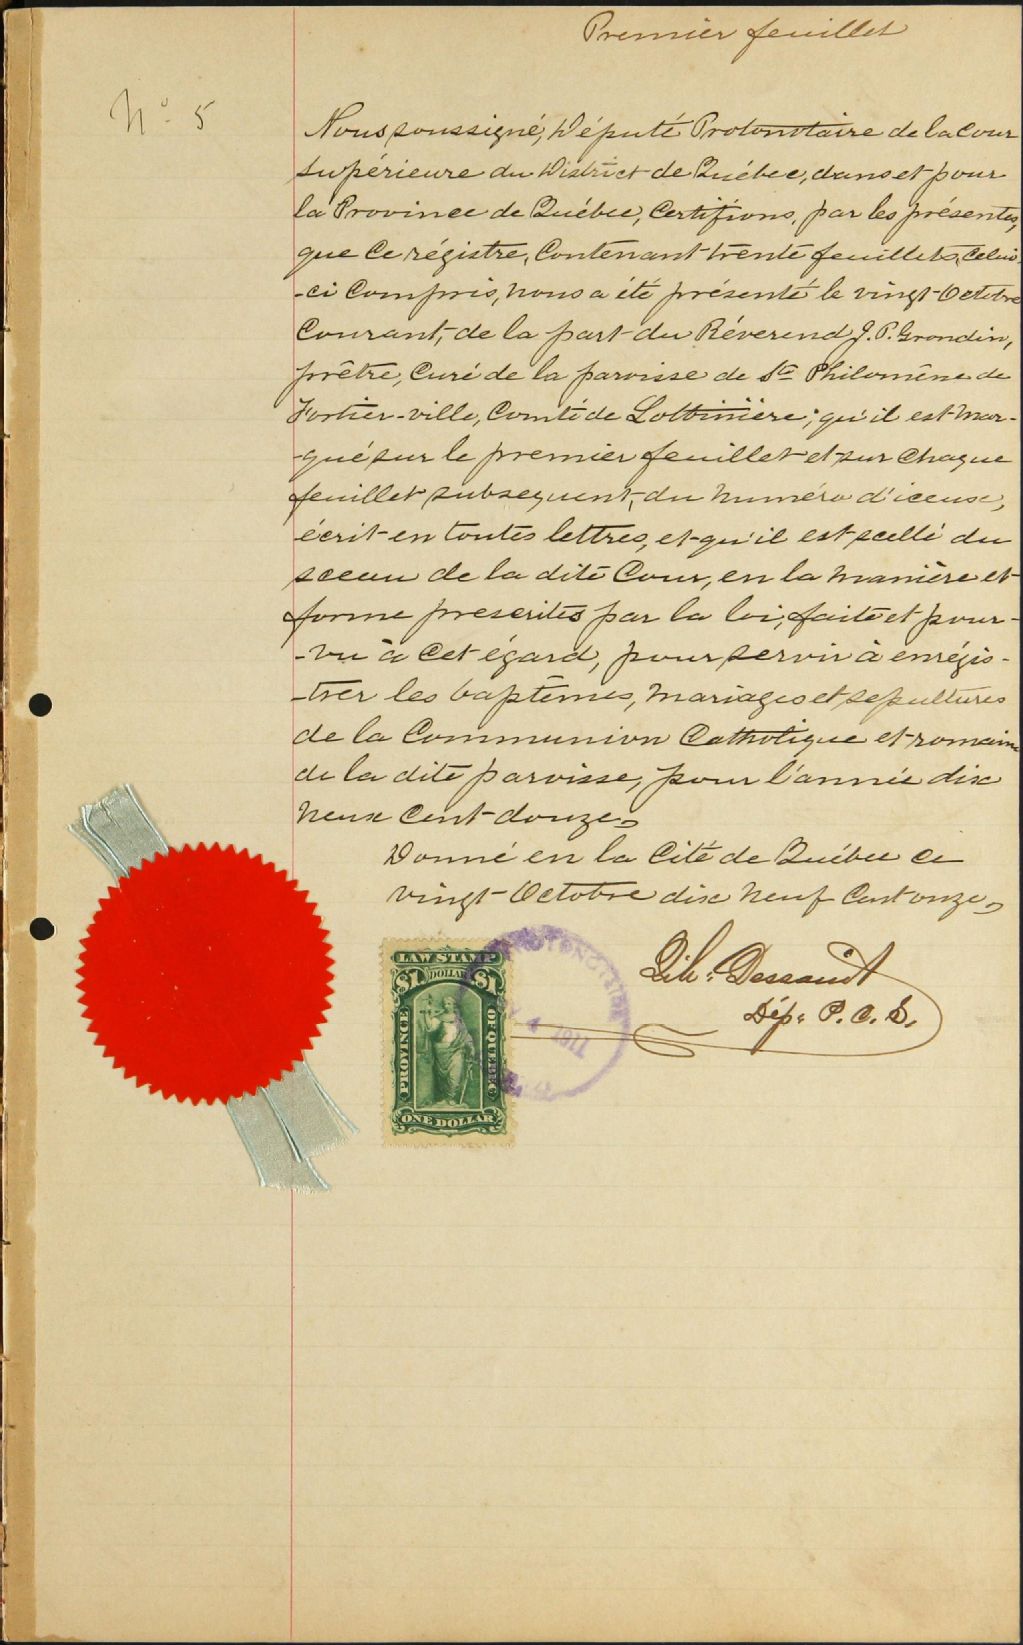 Premier feuillet
No. 5
Nous soussigné, Député Protonotaire de la Cour
Supérieure du District de Québec, dans et pour
la Province de Québec, Certifions, par les présentes,
que Ce régistre, Contenant trente feuillets, Celui-
-ci Compris, nous a été présenté le vingt Octobre
Courant, de la part du Réverend J. P. Grondin,
prêtre, Curé de la paroisse de Ste Philomène de
Fortier-ville, Comté de Lotbinière; qu'il est mar-
-qué sur le premier feuillet et sur Chaque
feuillet subsequent, du numéro d'iceux,
écrit en toutes lettres, et qu'il est scellé du
sceau de la dite Cour, en la manière et
forme prescrites par la loi, faite et pour-
-vu à Cet égard, pour servir à enrégis-
-trer les baptêmes, mariages et sepultures
de la Communion Catholique et romaine
de la dite paroisse, pour l'année dix
neux Cent douze,
Donné en la Cité de Québec Ce
vingt Octobre dix neuf Cent onze,
Dessaint
Dép. P. C. S.
LAW STAMP
$1 DOLLAR $1
PROVINCE OF QUEBEC
ONE DOLLAR
1911